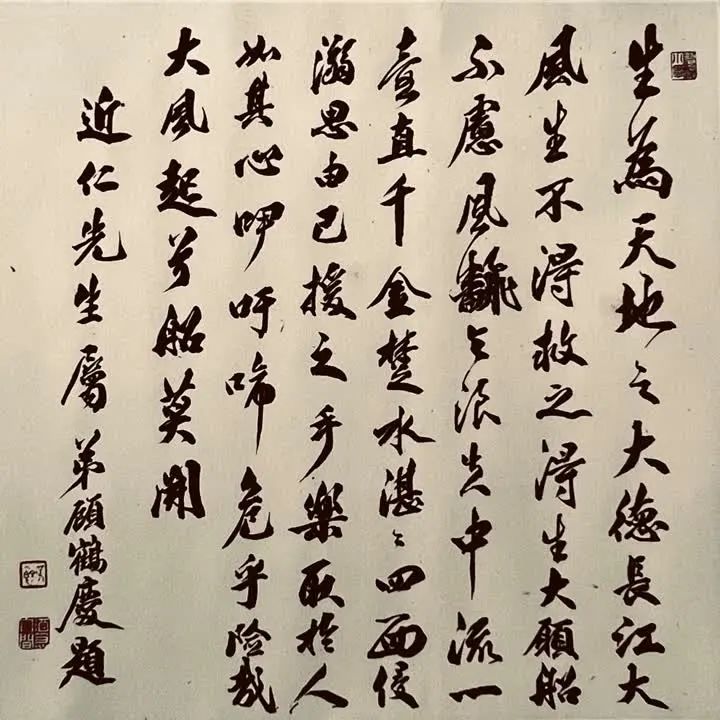 生為天地之大德長江大
風生不得救之得生大願船
不慮風飜之浪失中流一
壺直千金楚水湛〻四面侵
溺思由己援之手樂取於人
如其心呷吁啼危乎險哉
大風起兮船莫開
近仁先生屬弟顧鶴慶題